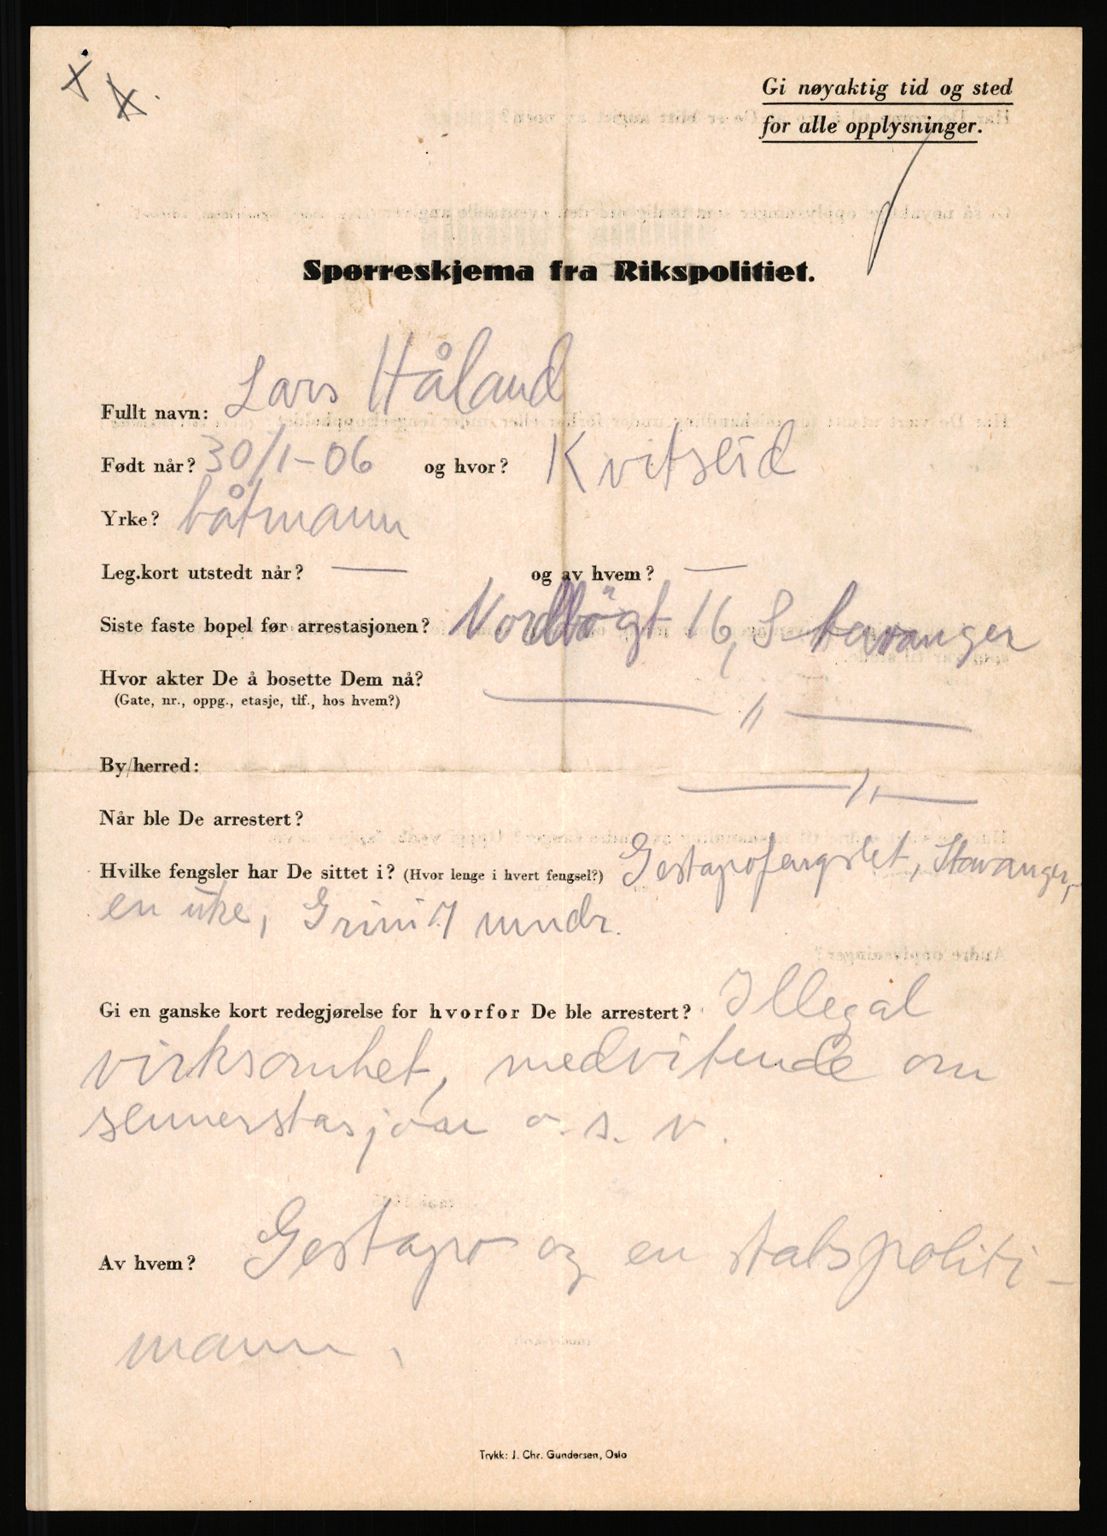 Gi nøyaktig tid og sted
for alle opplysninger.
Spørreskjema fra Rikspolitiet.
Fullt navn: Lars Håland
Født når? 30/1-06 og hvor? Kvitseid
Yrke? båtmann
Leg.kort utstedt når? — og av hvem? —
Siste faste bopel før arrestasjonen? Nordbögt 16, Stavanger
Hvor akter De å bosette Dem nå? — 〃 —
(Gate, nr., oppg., etasje, tlf., hos hvem?)
By/herred: — 〃 —
Når ble De arrestert?
Hvilke fengsler har De sittet i? (Hvor lenge i hvert fengsel?) Gestapofengslet, Stavanger,
en uke, Grini 7 mndr.
Gi en ganske kort redegjørelse for hvorfor De ble arrestert? Illegal
virksomhet, medvitende om
sennerstasjoner o.s.v.
Av hvem? Gestapo og en statspoliti-
mann.
Trykk: J. Chr. Gundersen, Oslo